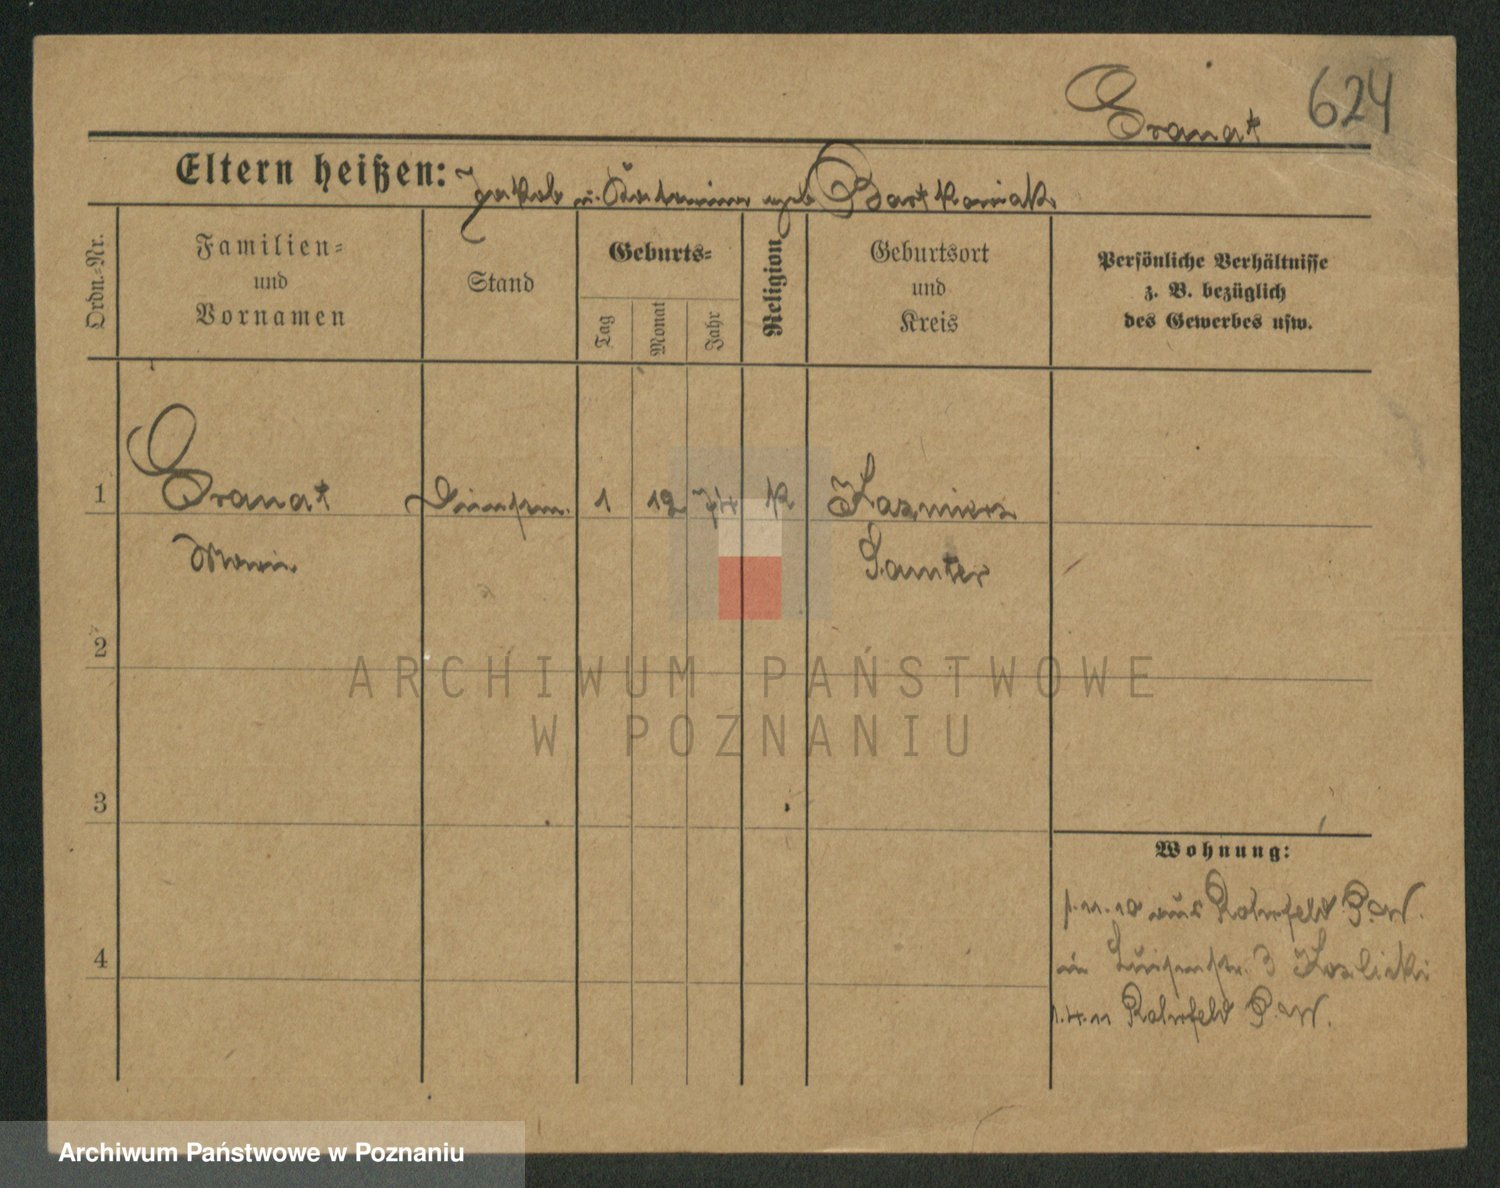 Granat 624
Eltern heißen: Jakob u. Katarina geb Bartkowiak
Ordn.-Nr.
Familien-
und
Vornamen
Stand
Geburts-
Tag
Monat
Jahr
Religion
Geburtsort
und
Kreis
Persönliche Verhältnisse
z. B. bezüglich
des Gewerbes usw.
1 Granat 1 12 74 K Kazmierz
Maria Samter
2
3
4
Wohnung:
1.11.10 aus Rohrfeld P.W.
in Luisenstr. 3 Kozlicki
1.4.11 Rohrfeld P.W.
ARCHIWUM PAŃSTWOWE
W POZNANIU
Archiwum Państwowe w Poznaniu